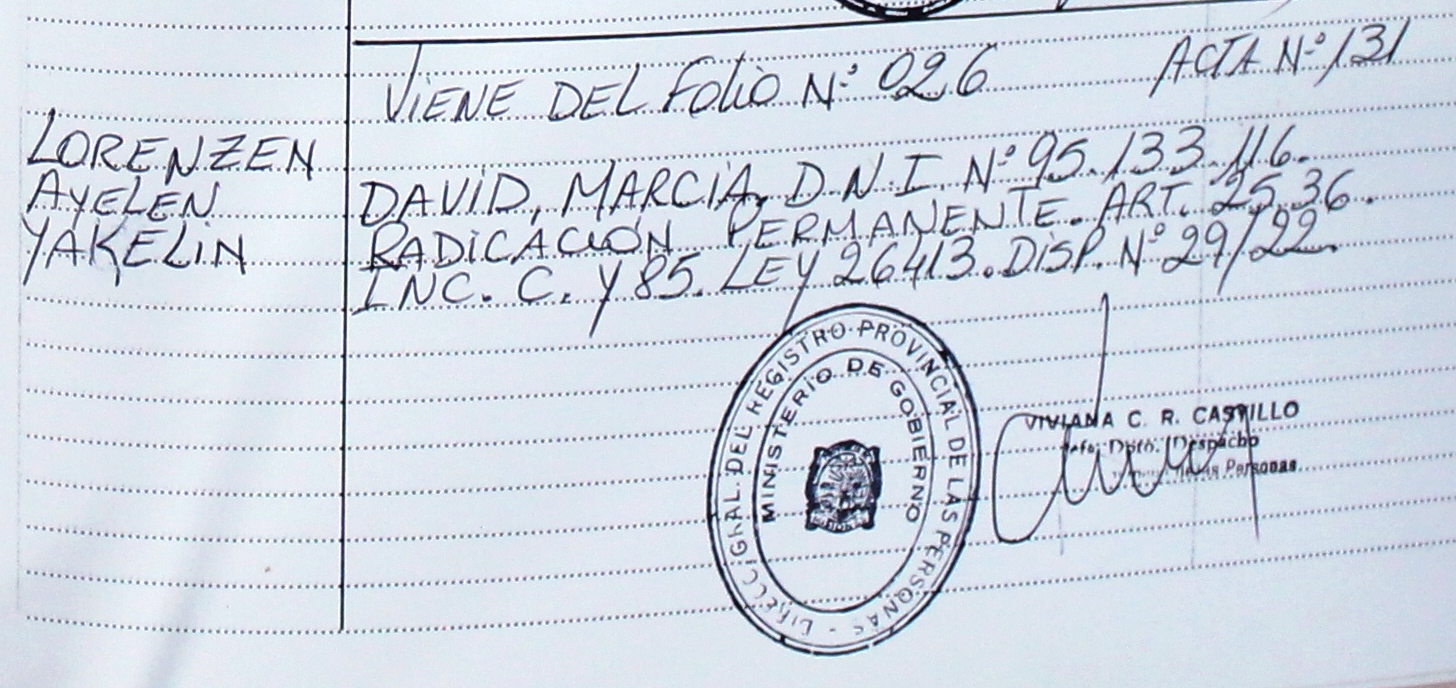 VIENE DEL FOLIO N° 026 ACTA N° 131
LORENZEN
AYELEN
YAKELIN
DAVID, MARCIA, D.N.I. N° 95.133.116.
RADICACIÓN PERMANENTE. ART. 25.36.
INC. C. Y 85. LEY 26413. DISP. N° 29/22.
GRAL. DEL REGISTRO PROVINCIAL DE LAS PERSONAS
MINISTERIO DE GOBIERNO
VIVIANA C. R. CASTILLO
Dpto. Despacho
Personas